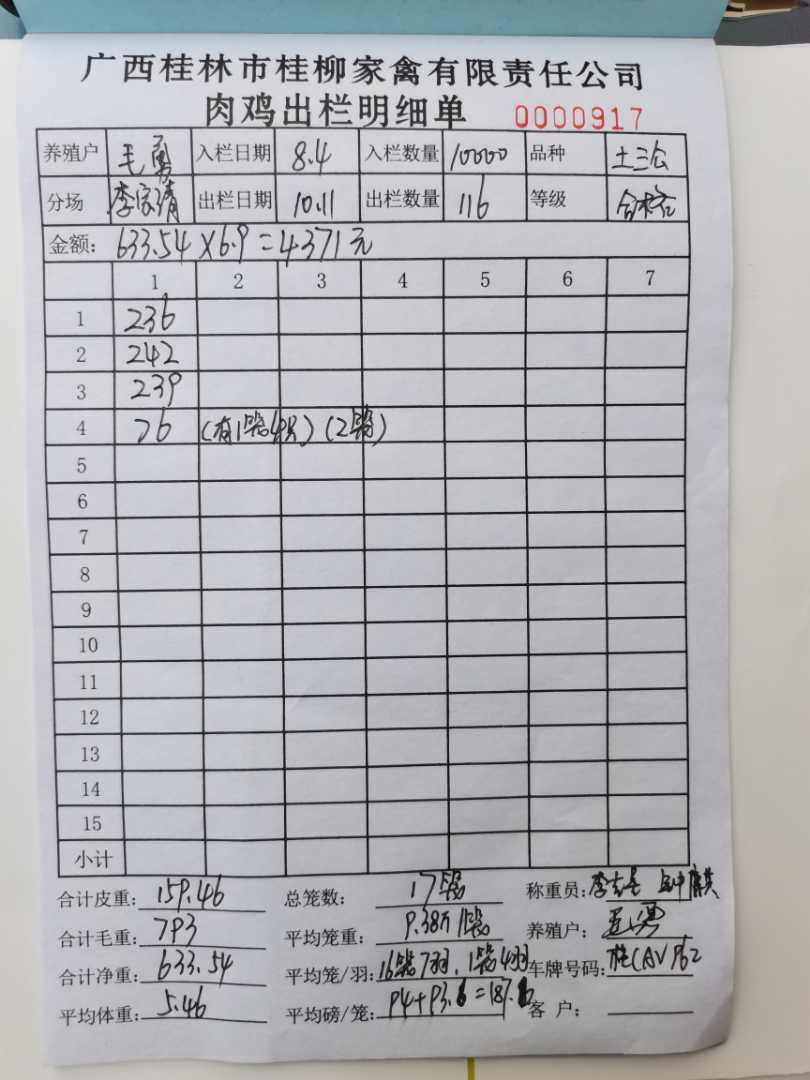 广西桂林市桂柳家禽有限责任公司
肉鸡出栏明细单 0000917
养殖户 毛勇 入栏日期 8.4 入栏数量 10000 品种 土三公
分场 李家靖 出栏日期 10.11 出栏数量 116 等级 合格
金额: 633.54×6.9=4371元
1 2 3 4 5 6 7
1 236
2 242
3 239
4 76 (有1笼4只)(2笼)
5
6
7
8
9
10
11
12
13
14
15
小计
合计皮重: 159.46 总笼数: 17笼 称重员: 李
合计毛重: 793 平均笼重: 9.38斤/笼 养殖户: 毛勇
合计净重: 633.54 平均笼/羽: 16笼7羽、1笼4羽 车牌号码: 桂CAV962
平均体重: 5.46 平均磅/笼: 94+93.6=187.6 客户: